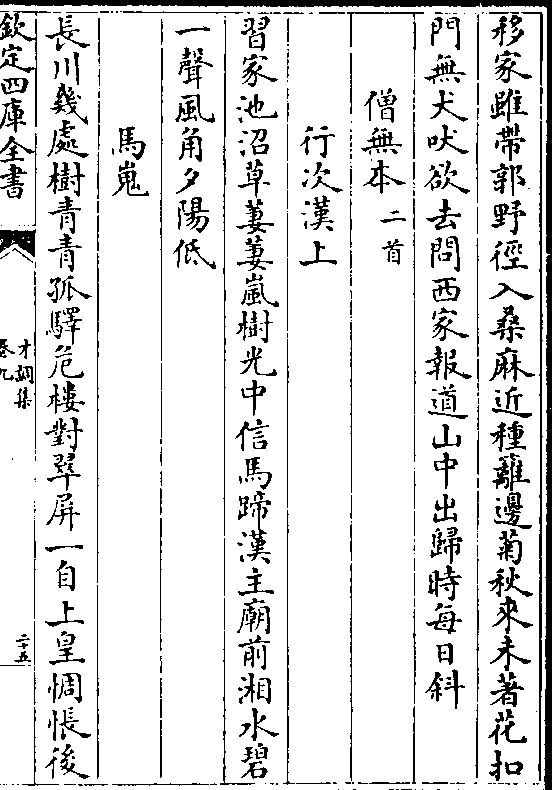 移家雖帶郭野徑入桑麻近種籬邊菊秋來未著花扣
門無犬吠欲去問西家報道山中出歸時每日斜
僧無本二首
行次漢上
習家池沼草萋萋嵐樹光中信馬蹄漢主廟前湘水碧
一聲風角夕陽低
馬嵬
長川幾處樹青青孤驛危樓對翠屏一自上皇惆悵後
欽定四庫全書
才調集
卷九
二十五